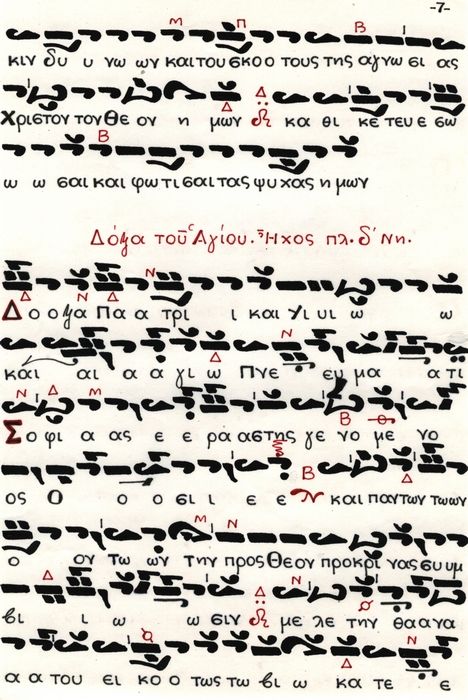 -7-
κιν δυ υ νω ων και του σκο ο τους της αγνω σι ας
Χριστον τον Θε ον η μων και θι κε τευ ε σω
ω ω σαι και φω τι σαι τας ψυ χας η μων
Δόξα τοῦ Ἁγίου. Ἦχος πλ. δ' Νη.
Δ ο ο ξα Πα α τρι ι και Υι υι ω ω
και αι α α γι ω Πνε ευ μα α τι
Σ ο φι α ας ε ε ρα αστης γε νο με νο
ος Ο ο ο σι ι ε ε και παν των των
ο ον το ων την προς Θε ον προ κρι νας συ υμ
βι ι ω ω σιν με λε την θα ανα
α α του ει κο ο τως τω βι ω κα τε ε